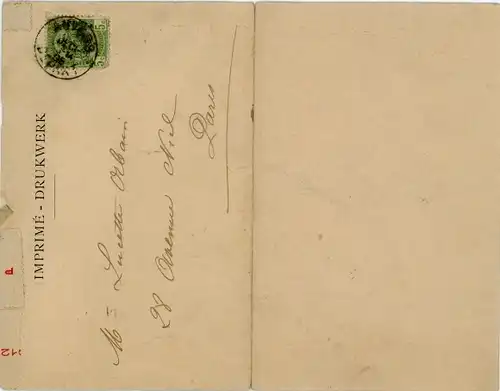 IMPRIMÉ - DRUKWERK
5
M = Lucette Orbain
28 Avenue Niel
Paris
12